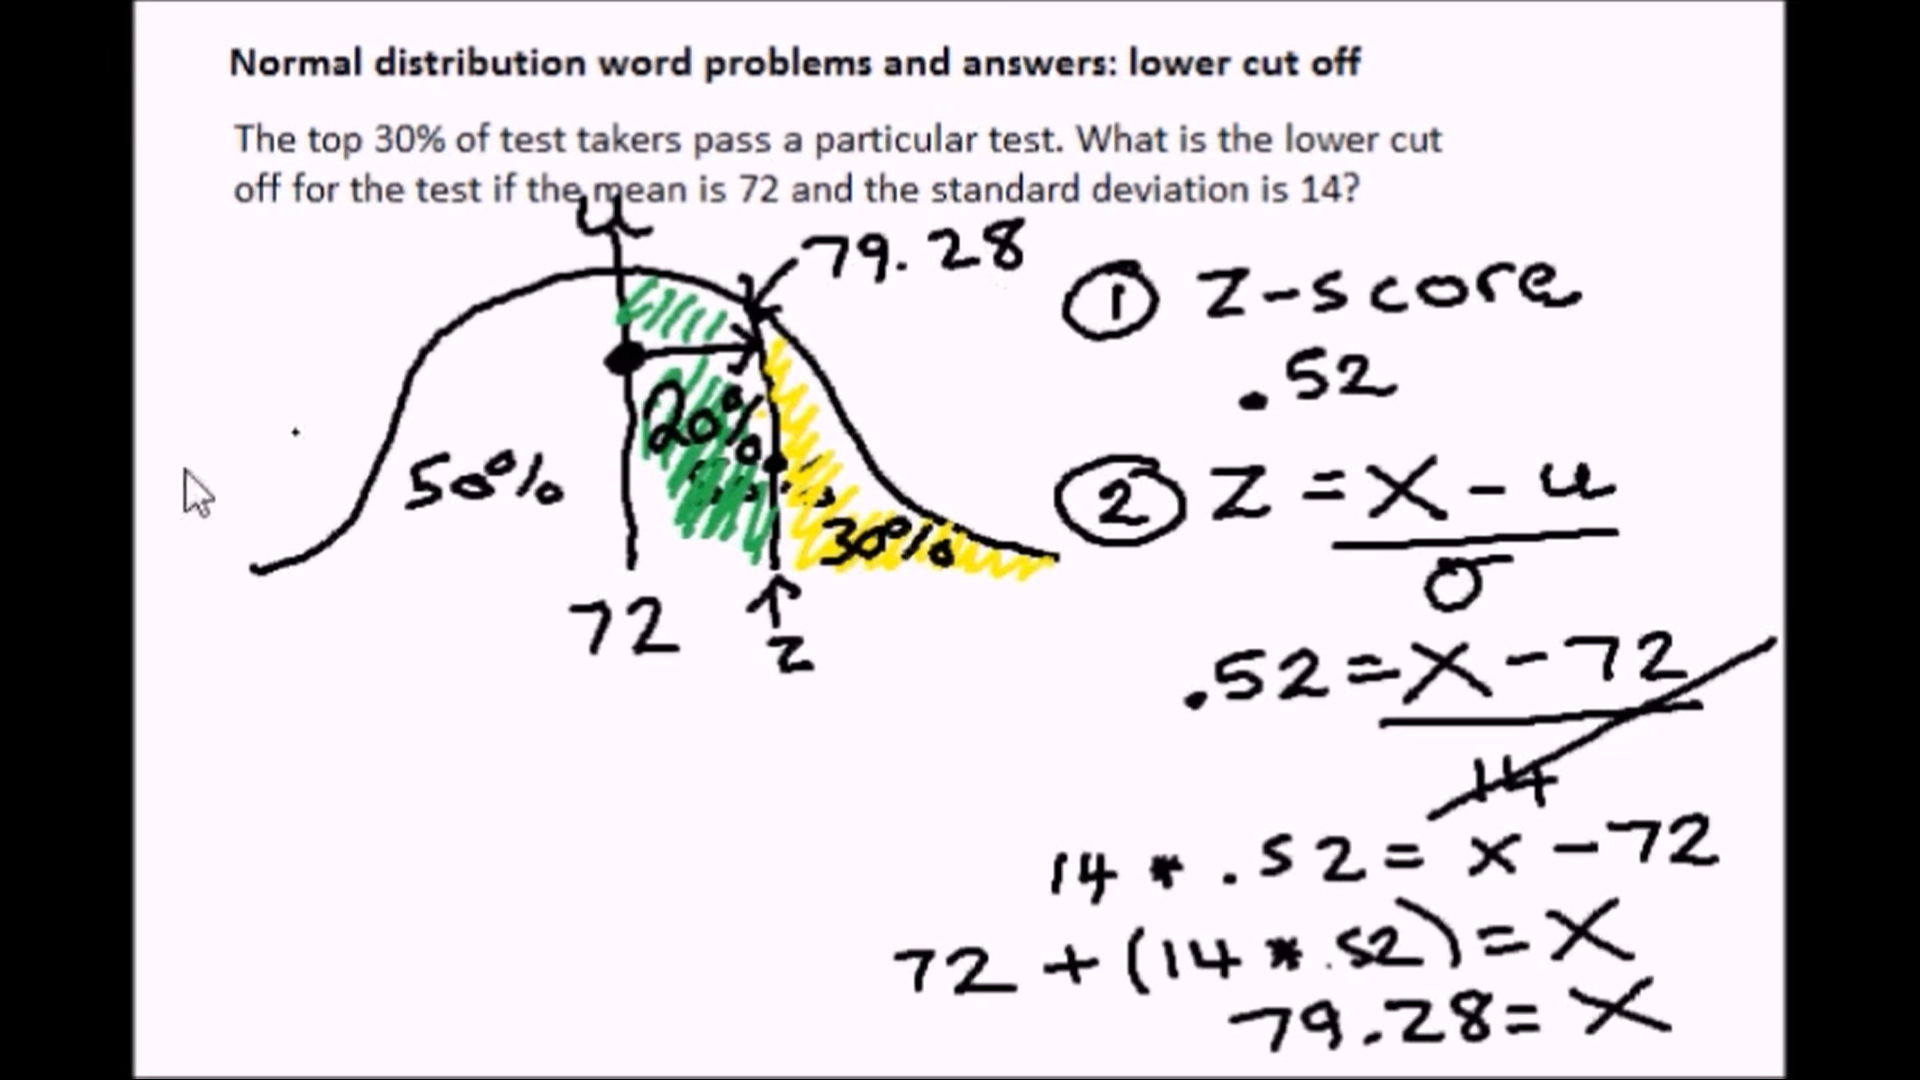 Normal distribution word problems and answers: lower cut off
The top 30% of test takers pass a particular test. What is the lower cut
off for the test if the mean is 72 and the standard deviation is 14?
u
79.28
50%
20%
30%
72
z
① z-score
.52
② z = x - u
σ
.52 = x - 72
14
14 * .52 = x - 72
72 + (14 * .52) = x
79.28 = x